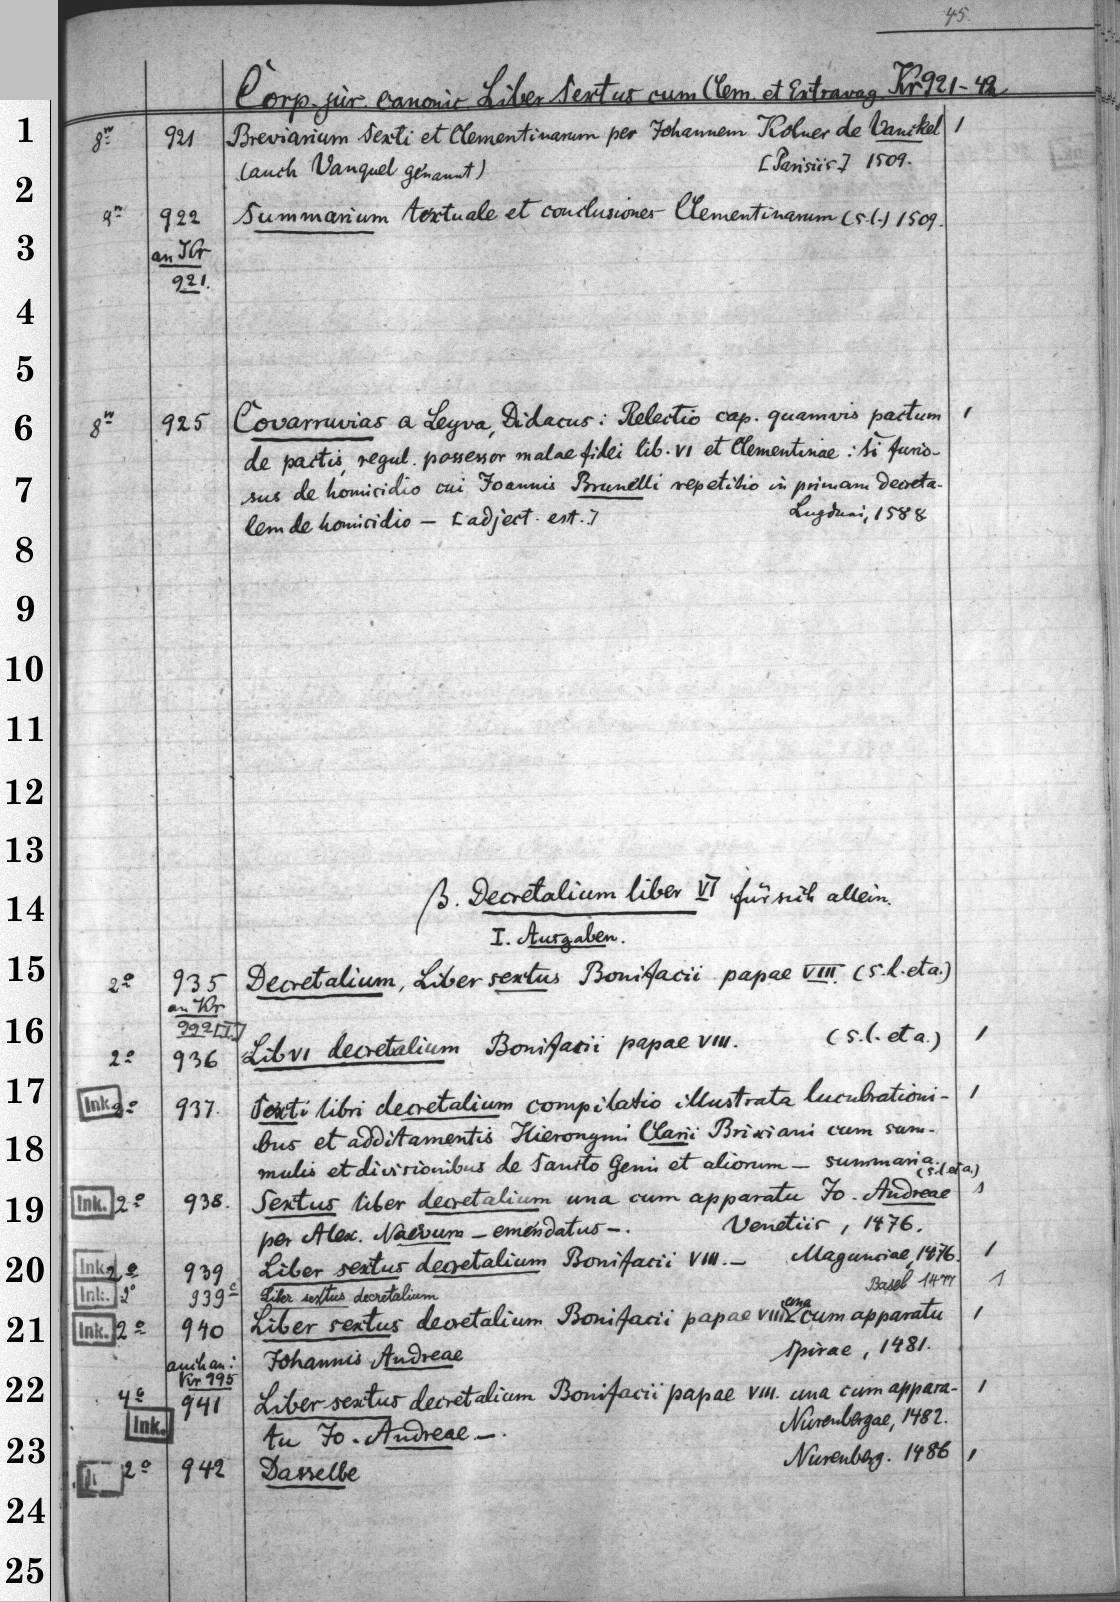 45.
Corp. jur. canonic Liber Sextus cum Clem. et Extravag. Kr 921-42
1
8º 921 Breviarium Sexti et Clementinarum per Johannem Kolner de Vanckel 1
(auch Vanquel genannt) [Parisiis] 1509.
2
8º 922 Summarium textuale et conclusiones Clementinarum (s.l.) 1509.
3
an Kr
921.
4
5
6
8º 925 Covarruvias a Leyva, Didacus: Relectio cap. quamvis pactum 1
de pactis, regul. possessor malae fidei lib. VI et Clementinae: Si furio-
7
sus de homicidio cui Joannis Brunelli repetitio in primam decreta-
lem de homicidio – [adject. est.] Lugduni, 1588
8
9
10
11
12
13
14
β. Decretalium liber VI für sich allein.
I. Ausgaben.
15
2º 935 Decretalium, Liber sextus Bonifacii papae VIII. (s.l. et a.)
an Kr
992 [I.]
16
2º 936 Lib VI decretalium Bonifacii papae VIII. (s.l. et a.) 1
17
Ink. 2º 937. Sexti libri decretalium compilatio illustrata lucubrationi- 1
bus et additamentis Hieronymi Clarii Brixiani cum sum-
18
mulis et divisionibus de Sancto Genii et aliorum – summaria. (s.l. et a.)
19
Ink. 2º 938. Sextus liber decretalium una cum apparatu Jo. Andreae 1
per Alex. Naevum – emendatus –. Venetiis, 1476.
20
Ink. 2º 939 Liber sextus decretalium Bonifacii VIII. – Magunciae, 1476. 1
Ink. 2º 939c Liber sextus decretalium Basel 1477 1
21
Ink. 2º 940 Liber sextus decretalium Bonifacii papae VIII. una cum apparatu 1
auch an: Johannis Andreae Spirae, 1481.
Kr 995
22
4º 941 Liber sextus decretalium Bonifacii papae VIII. una cum appara- 1
Ink. tu Jo. Andreae –. Nurenbergae, 1482.
23
2º 942 Dasselbe Nurenberg. 1486 1
24
25